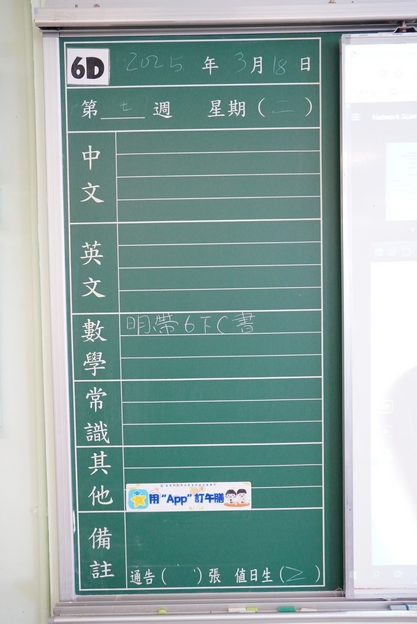 6D 2025 年 3 月 18 日
第 七 週 星期 ( 二 )
中文
英文
數學 明帶6下C書
常識
其他 用“App”訂午膳
備註
通告 ( ) 張 值日生 ( 2 )